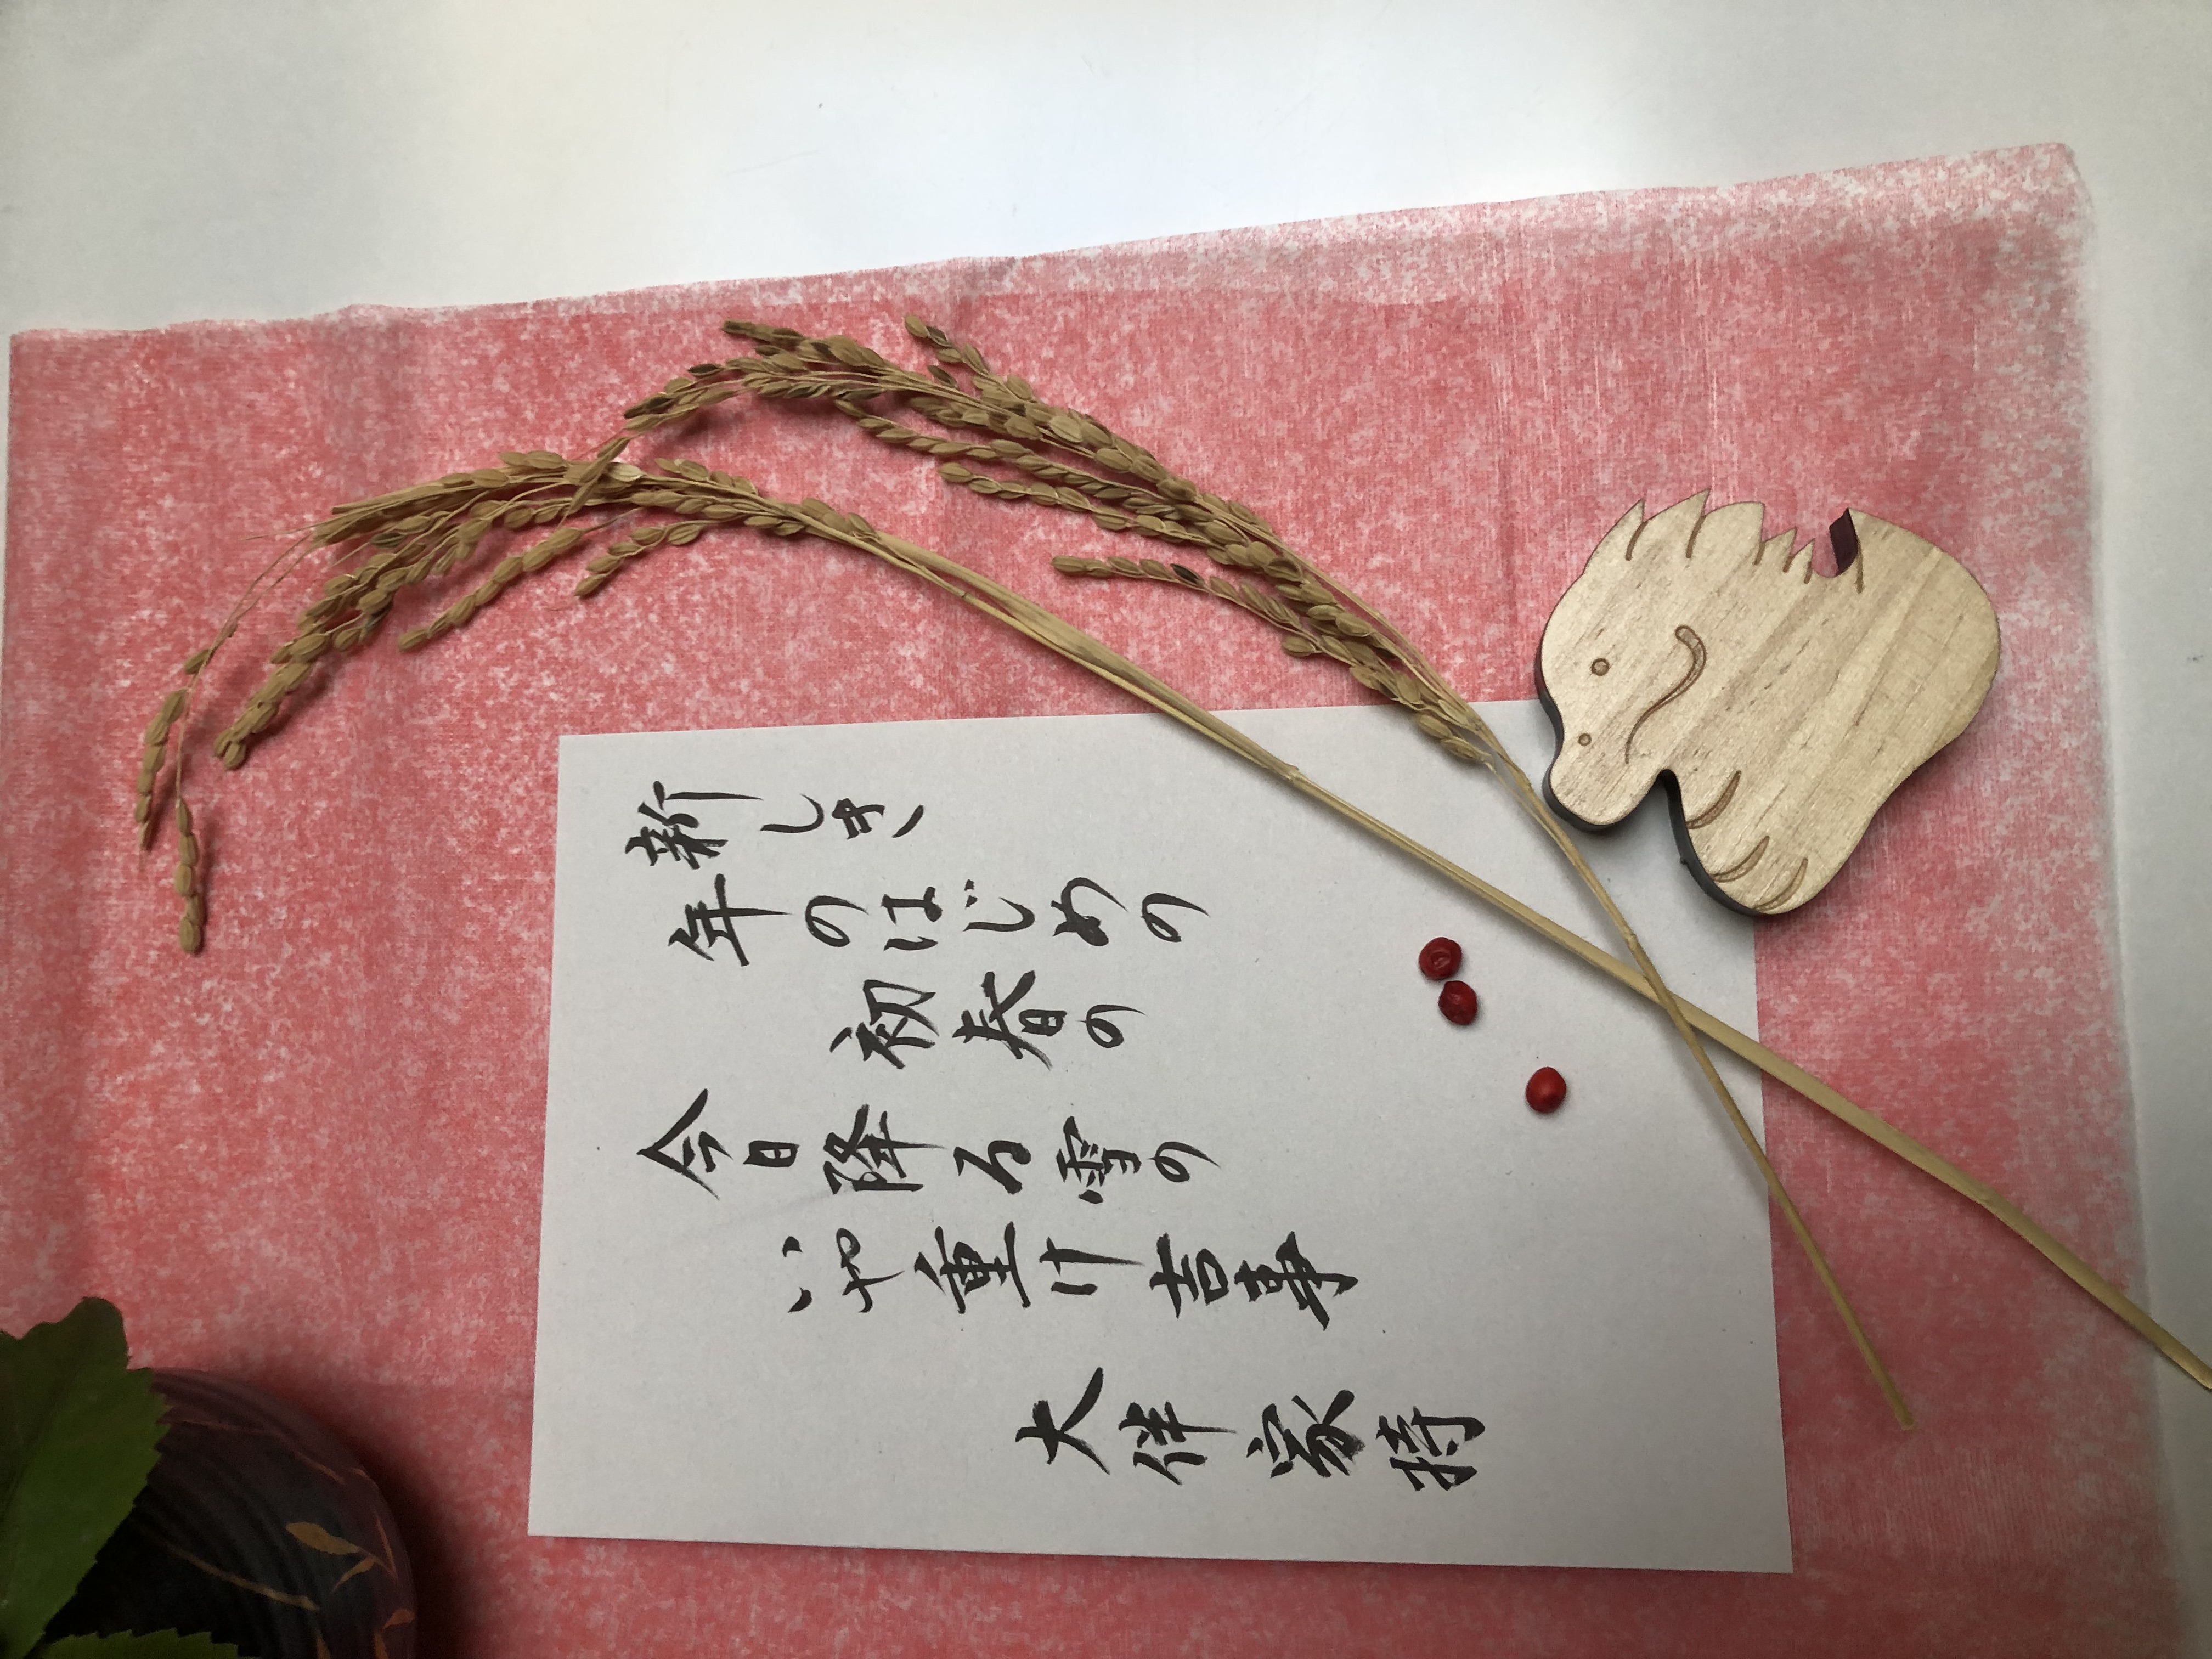 新しき
年のはじめの
初春の
今日降る雪の
いや重け吉事
大伴家持